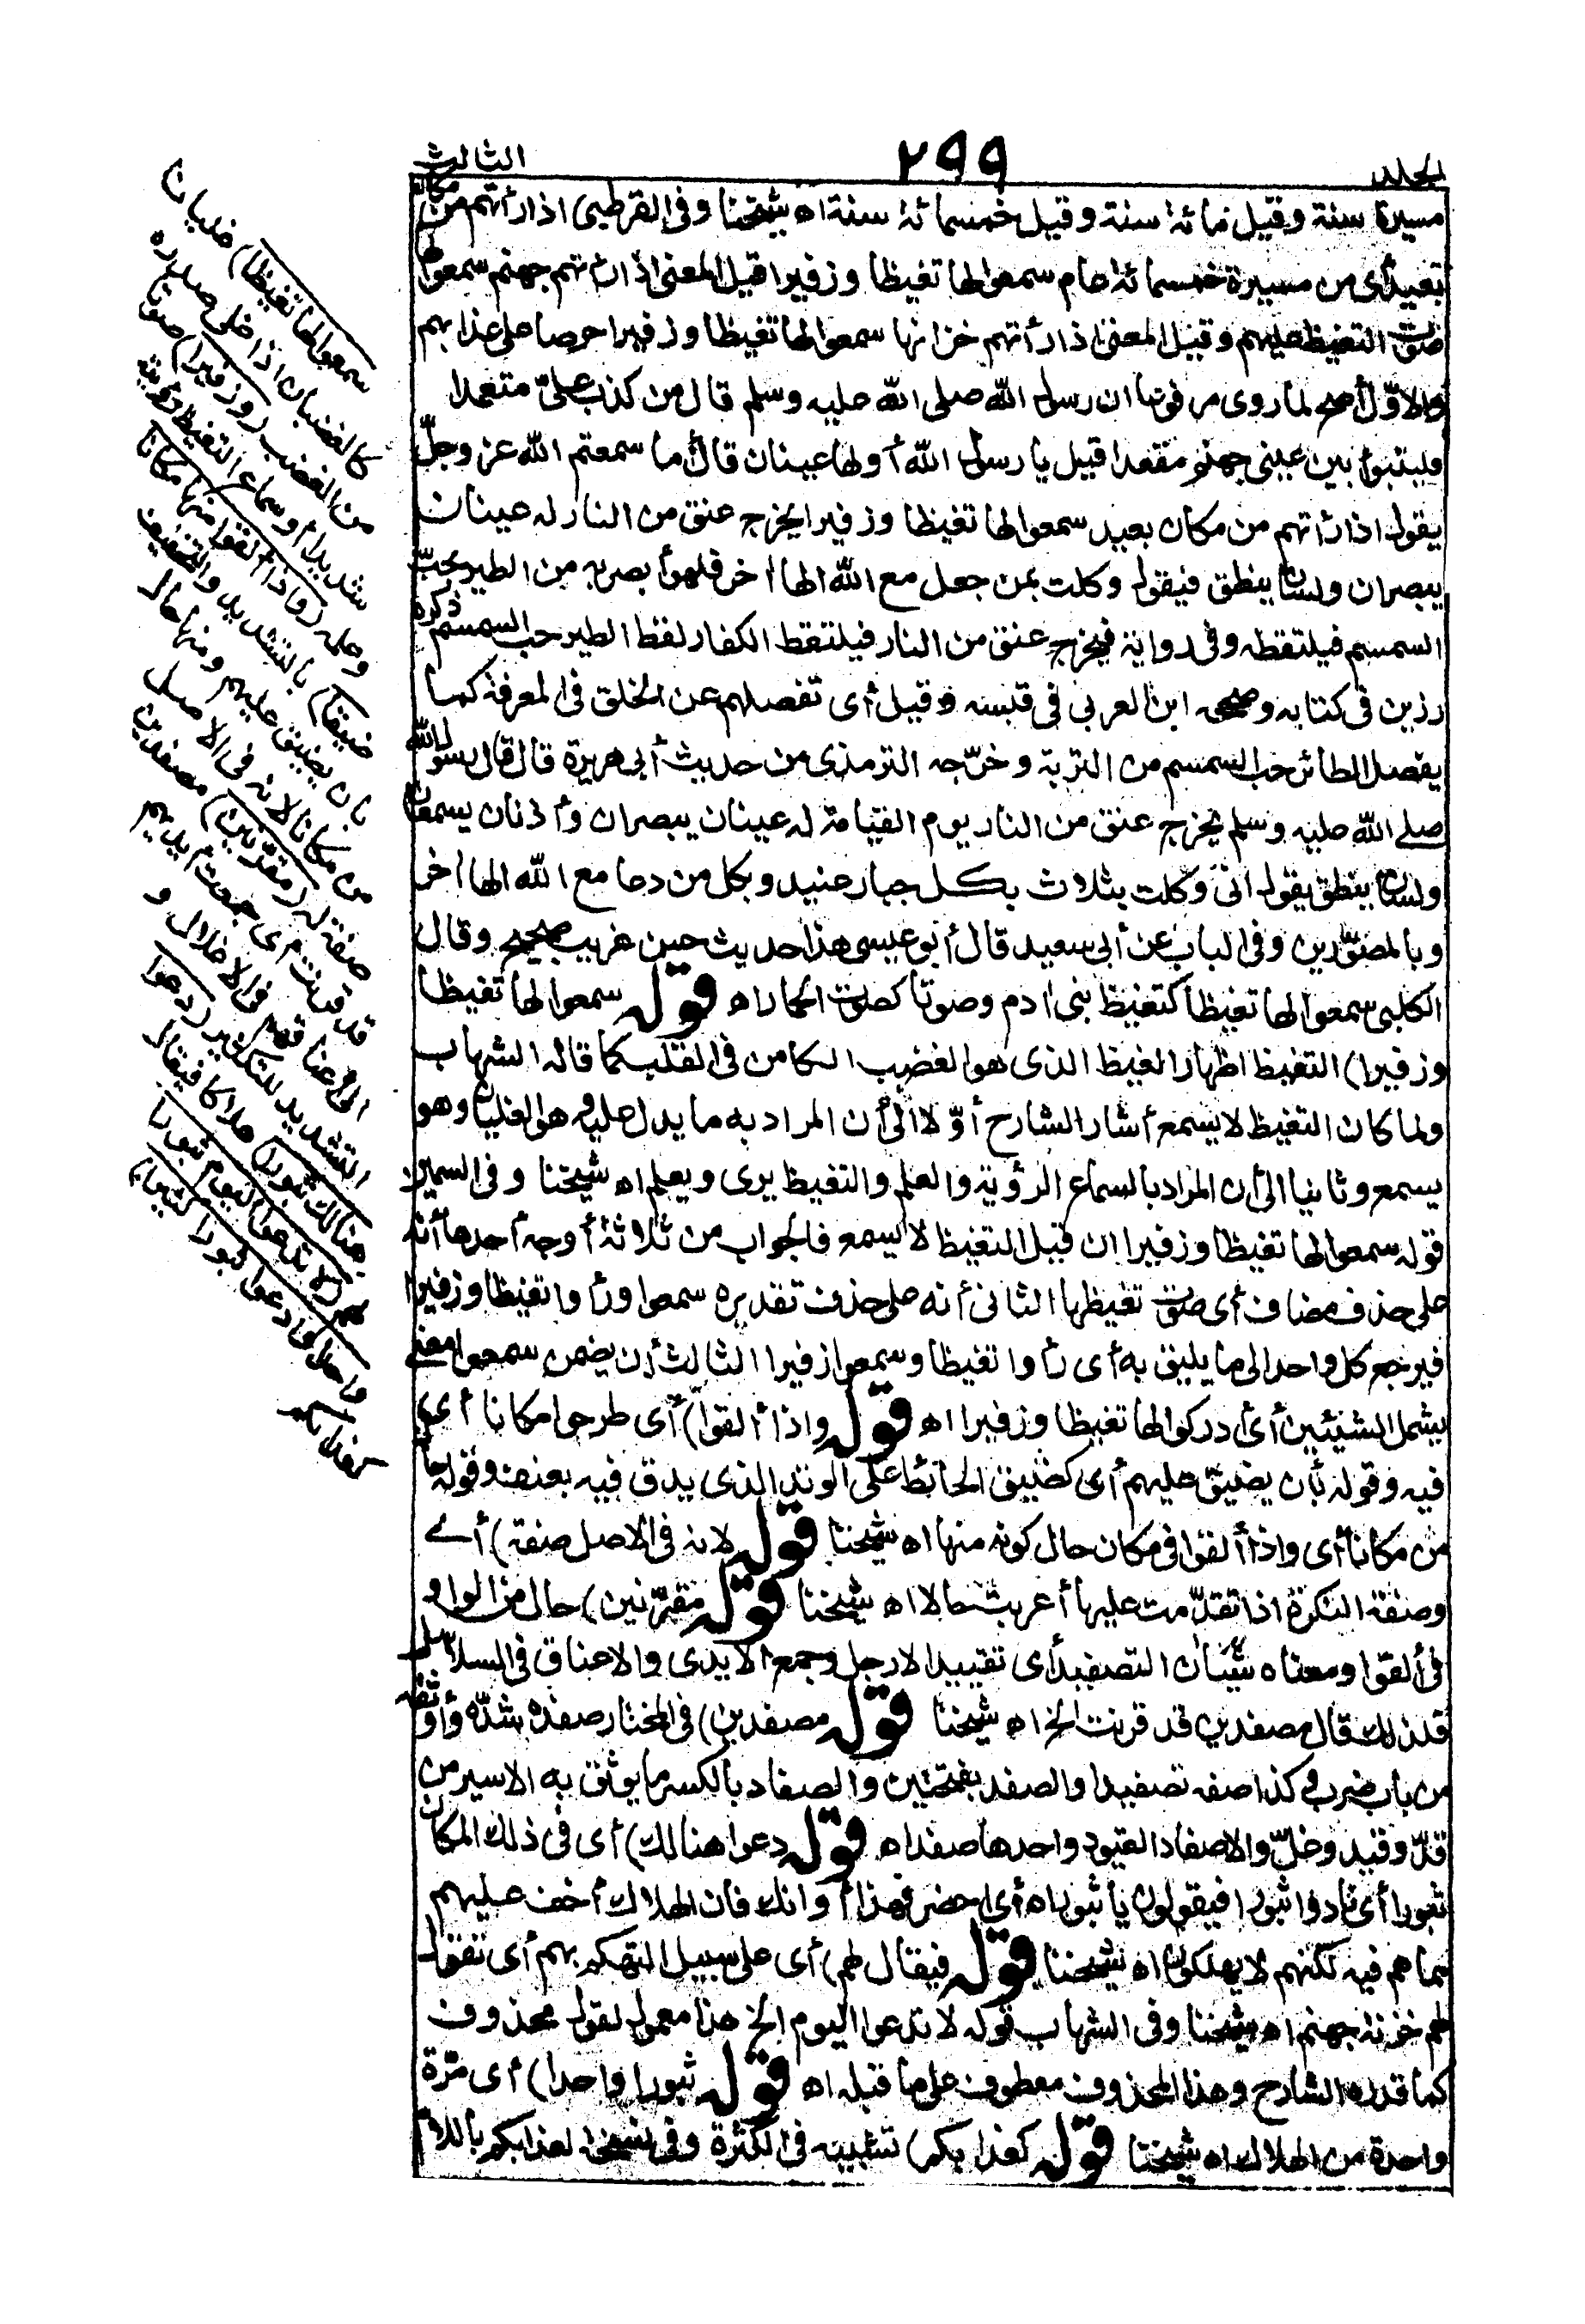 المجلد
٢٩٩
الثالث
مسيرة سنة وقيل مائة سنة وقيل خمسمائة سنة اه شيخنا وفى القرطبى اذا رأتهم من مكان
بعيد أى من مسيرة خمسمائة عام سمعوا لها تغيظا وزفيرا قيل المعنى اذا رأتهم جهنم سمعوا لها
صوت التغيظ عليهم وقيل المعنى اذا رأتهم خزانها سمعوا لها تغيظا وزفيرا حرصا على عذابهم
والاول أصح لما روى مرفوعا ان رسول الله صلى الله عليه وسلم قال من كذب علىّ متعمدا
فليتبوأ بين عينى جهنم مقعدا قيل يا رسول الله أولها عينان قال أما سمعتم الله عز وجلّ
يقول اذا رأتهم من مكان بعيد سمعوا لها تغيظا وزفيرا يخرج عنق من النار له عينان
يبصران ولسان ينطق فيقول وكلت بمن جعل مع الله الها اخر فلهو أبصر به من الطير بحبّ
السمسم فيلتقطه وفى رواية فيخرج عنق من النار فيلتقط الكفار لقط الطير حب السمسم ذكره
رزين فى كتابه وصححه ابن العربى فى قبسه وقيل أى تفصلهم عن الخلق فى المعرفة كما
يفصل الطائر حب السمسم من التربة وخرّجه الترمذى من حديث أبى هريرة قال قال رسول الله
صلى الله عليه وسلم يخرج عنق من النار يوم القيامة له عينان يبصران وأذنان يسمعان
ولسان ينطق يقول انى وكلت بثلاث بكل جبار عنيد وبكل من دعا مع الله الها اخر
وبالمصوّرين وفى الباب عن أبى سعيد قال أبو عيسى هذا حديث حسن غريب صحيح وقال
الكلبى سمعوا لها تغيظا كتغيظ بنى ادم وصوتا كصوت الحمار اه قوله سمعوا لها تغيظا
وزفيرا) التغيظ اظهار الغيظ الذى هو الغضب الكامن فى القلب كما قاله الشهاب
ولما كان التغيظ لا يسمع أشار الشارح أوّلا الى أن المراد به ما يدل عليه وهو الغليان وهو
يسمع وثانيا الى أن المراد بالسماع الرؤية والعلم والتغيظ يرى ويعلم اه شيخنا وفى السمين
قوله سمعوا لها تغيظا وزفيرا ان قيل التغيظ لا يسمع فالجواب من ثلاثة أوجه أحدها أنه
على حذف مضاف أى صوت تغيظها الثانى أنه على حذف تقديره سمعوا ورأوا تغيظا وزفيرا
فيرجع كل واحد الى ما يليق به أى رأوا تغيظا وسمعوا زفيرا الثالث أن يضمن سمعوا معنى
يشمل الشيئين أى أدركوا لها تغيظا وزفيرا اه قوله واذا ألقوا) أى طرحوا مكانا أى
فيه وقوله بأن يضيق عليهم أى كضيق الحائط على الوتد الذى يدق فيه بعنف وقوله حال
من مكانا أى واذا ألقوا فى مكان حال كونه منها اه شيخنا قوله لانه فى الاصل صفة) أى
وصفة النكرة اذا تقدّمت عليها أعربت حالا اه شيخنا قوله مقرّنين) حال من الواو
فى ألقوا ومعناه شيئان التصفيد أى تقييد الارجل وجمع الايدى والاعناق فى السلاسل
فلذلك قال مصفدين قد قرنت الخ اه شيخنا قوله مصفدين) فى المختار صفده شدّه وأوثقه
من باب ضرب وكذا صفده تصفيدا والصفد بفتحتين والصفاد بالكسر ما يوثق به الاسير من
قدّ وقيد وغلّ والاصفاد القيود واحدها صفد اه قوله دعوا هنالك) أى فى ذلك المكان
ثبورا أى نادوا ثبورا فيقولون يا ثبوراه أى احضر فهذا أوانك فان الهلاك أخف عليهم
مما هم فيه لكنهم لا يهلكون اه شيخنا قوله فيقال لهم) أى على سبيل التهكم بهم أى تقول
لهم خزنة جهنم اه شيخنا وفى الشهاب قوله لا تدعوا اليوم الخ هذا معمول لقول محذوف
كما قدره الشارح وهذا المحذوف معطوف على ما قبله اه قوله ثبورا واحدا) أى مرّة
واحدة من الهلاك اه شيخنا قوله كعذابكم) تشبيه فى الكثرة وفى نسخة لعذابكم باللام
سمعوا لها تغيظا) غليان
كالغضبان اذا غلى صدره
من الغضب (وزفيرا) صوتا
شديدا أو سماع التغيظ رؤيته
وعلمه (واذا ألقوا منها مكانا
ضيقا) بالتشديد والتخفيف
بان يضيق عليهم ومنها حال
من مكانا لانه فى الاصل
صفة له (مقرّنين) مصفدين
قد قرنت أى جمعت أيديهم
الى أعناقهم فى الاغلال و
التشديد للتكثير (دعوا
هنالك ثبورا) هلاكا فيقال
لهم (لا تدعوا اليوم ثبورا
واحدا وادعوا ثبورا كثيرا)
كعذابكم